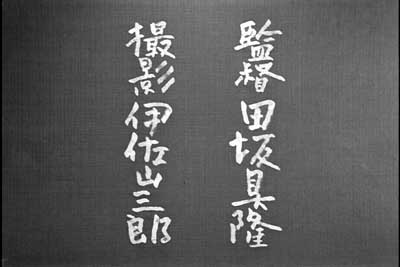 監督 田坂具隆
撮影 伊佐山三郎